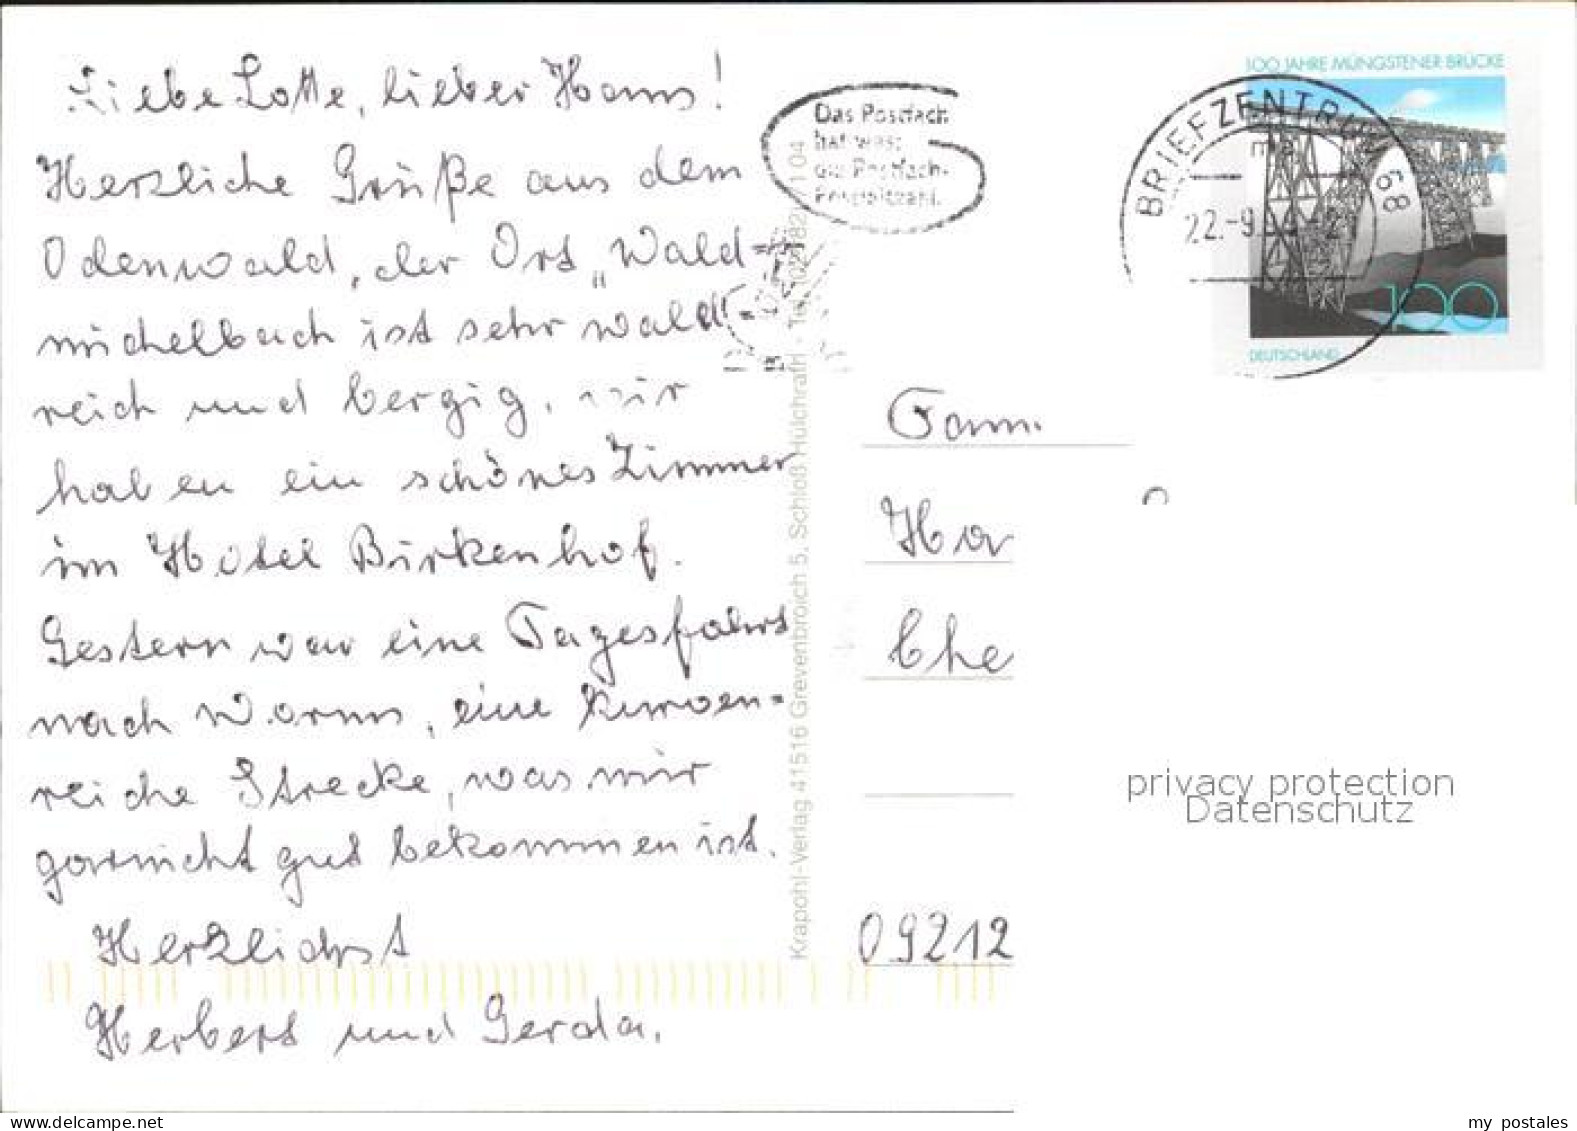 Liebe Lotte, lieber Hans!
Herzliche Grüße aus dem
Odenwald, der Ort „Wald=
michelbach ist sehr wald=
reich und bergig, wir
haben ein schönes Zimmer
im Hotel Birkenhof.
Gestern war eine Tagesfahrt
nach Worms, eine kurven=
reiche Strecke, was mir
garnicht gut bekommen ist.
Herzlichst
Herbert und Gerda.
Krapohl-Verlag 41516 Grevenbroich 5, Schloß Hülchrath
Das Postfach
hat was:
die Postfach-
100 JAHRE MÜNGSTENER BRÜCKE
BRIEFZENTRUM 68
22.-9.
100
DEUTSCHLAND
Fam.
Ha
Che
09212
privacy protection
Datenschutz
my postales